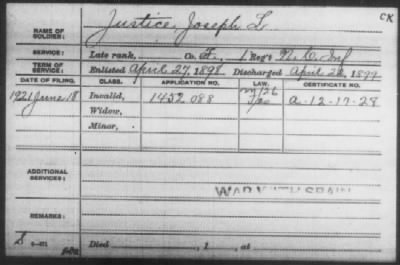 CK
NAME OF SOLDIER: Justice, Joseph L.
SERVICE: Late rank, Co. F., 1 Reg't N.C. Inf
TERM OF SERVICE: Enlisted April 27, 1898. Discharged April 22, 1899
DATE OF FILING. CLASS. APPLICATION NO. LAW. CERTIFICATE NO.
1921 June 18 Invalid, 1452 088 A-12-17-28
Widow,
Minor,
ADDITIONAL SERVICES:
WAR WITH SPAIN
REMARKS:
Died , 1 , at